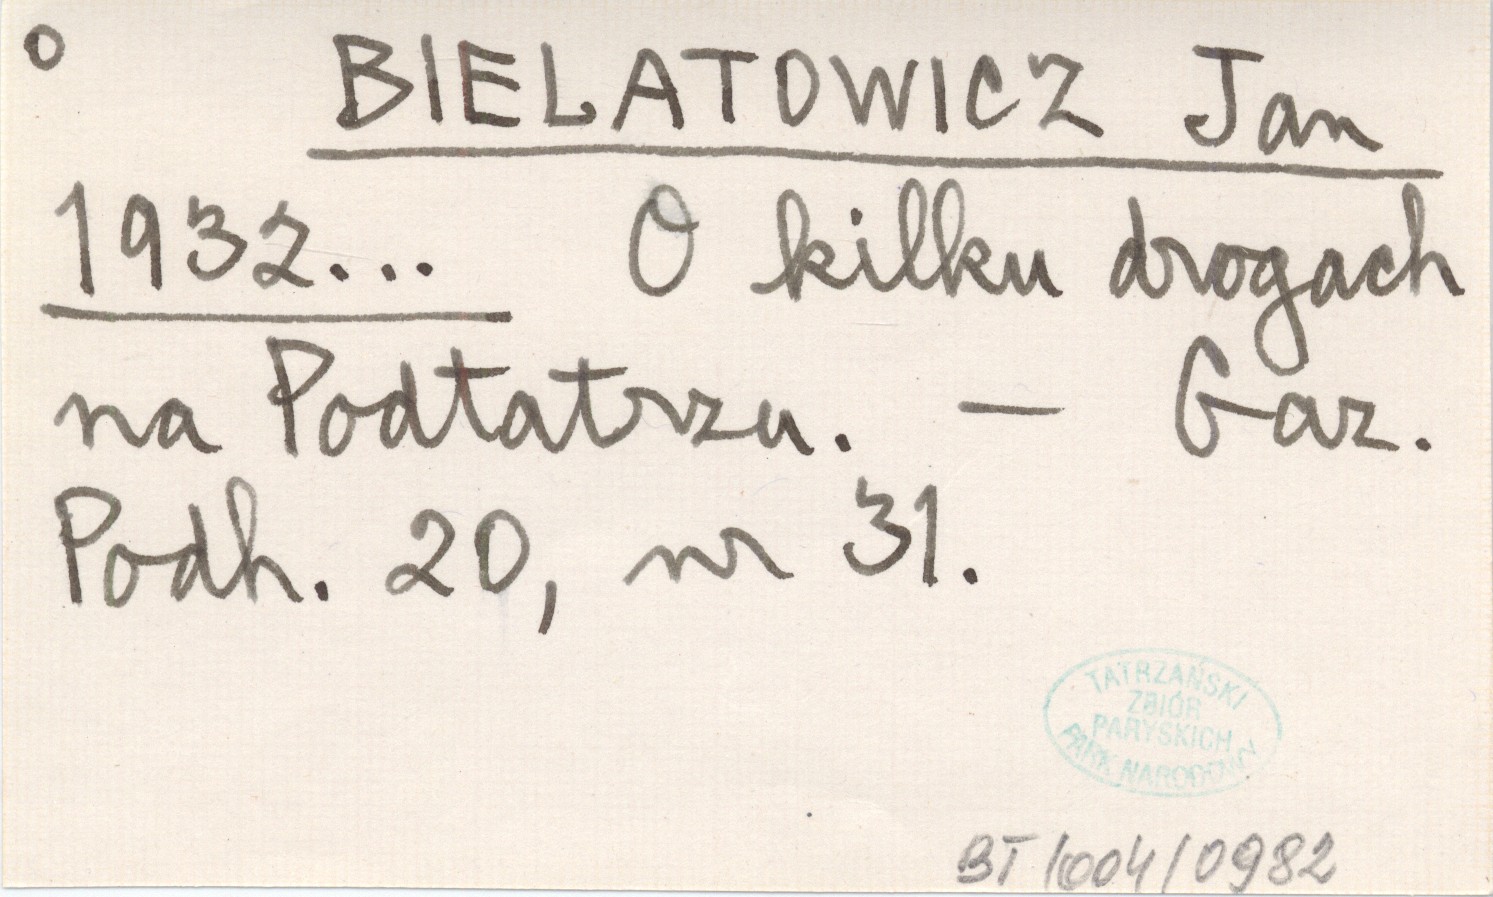 o BIELATOWICZ Jan
1932... O kilku drogach
na Podtatrzu. — Gaz.
Podh. 20, nr 31.
TATRZAŃSKI
ZBIÓR
PARYSKICH
PARK NARODOWY
BT/004/0982